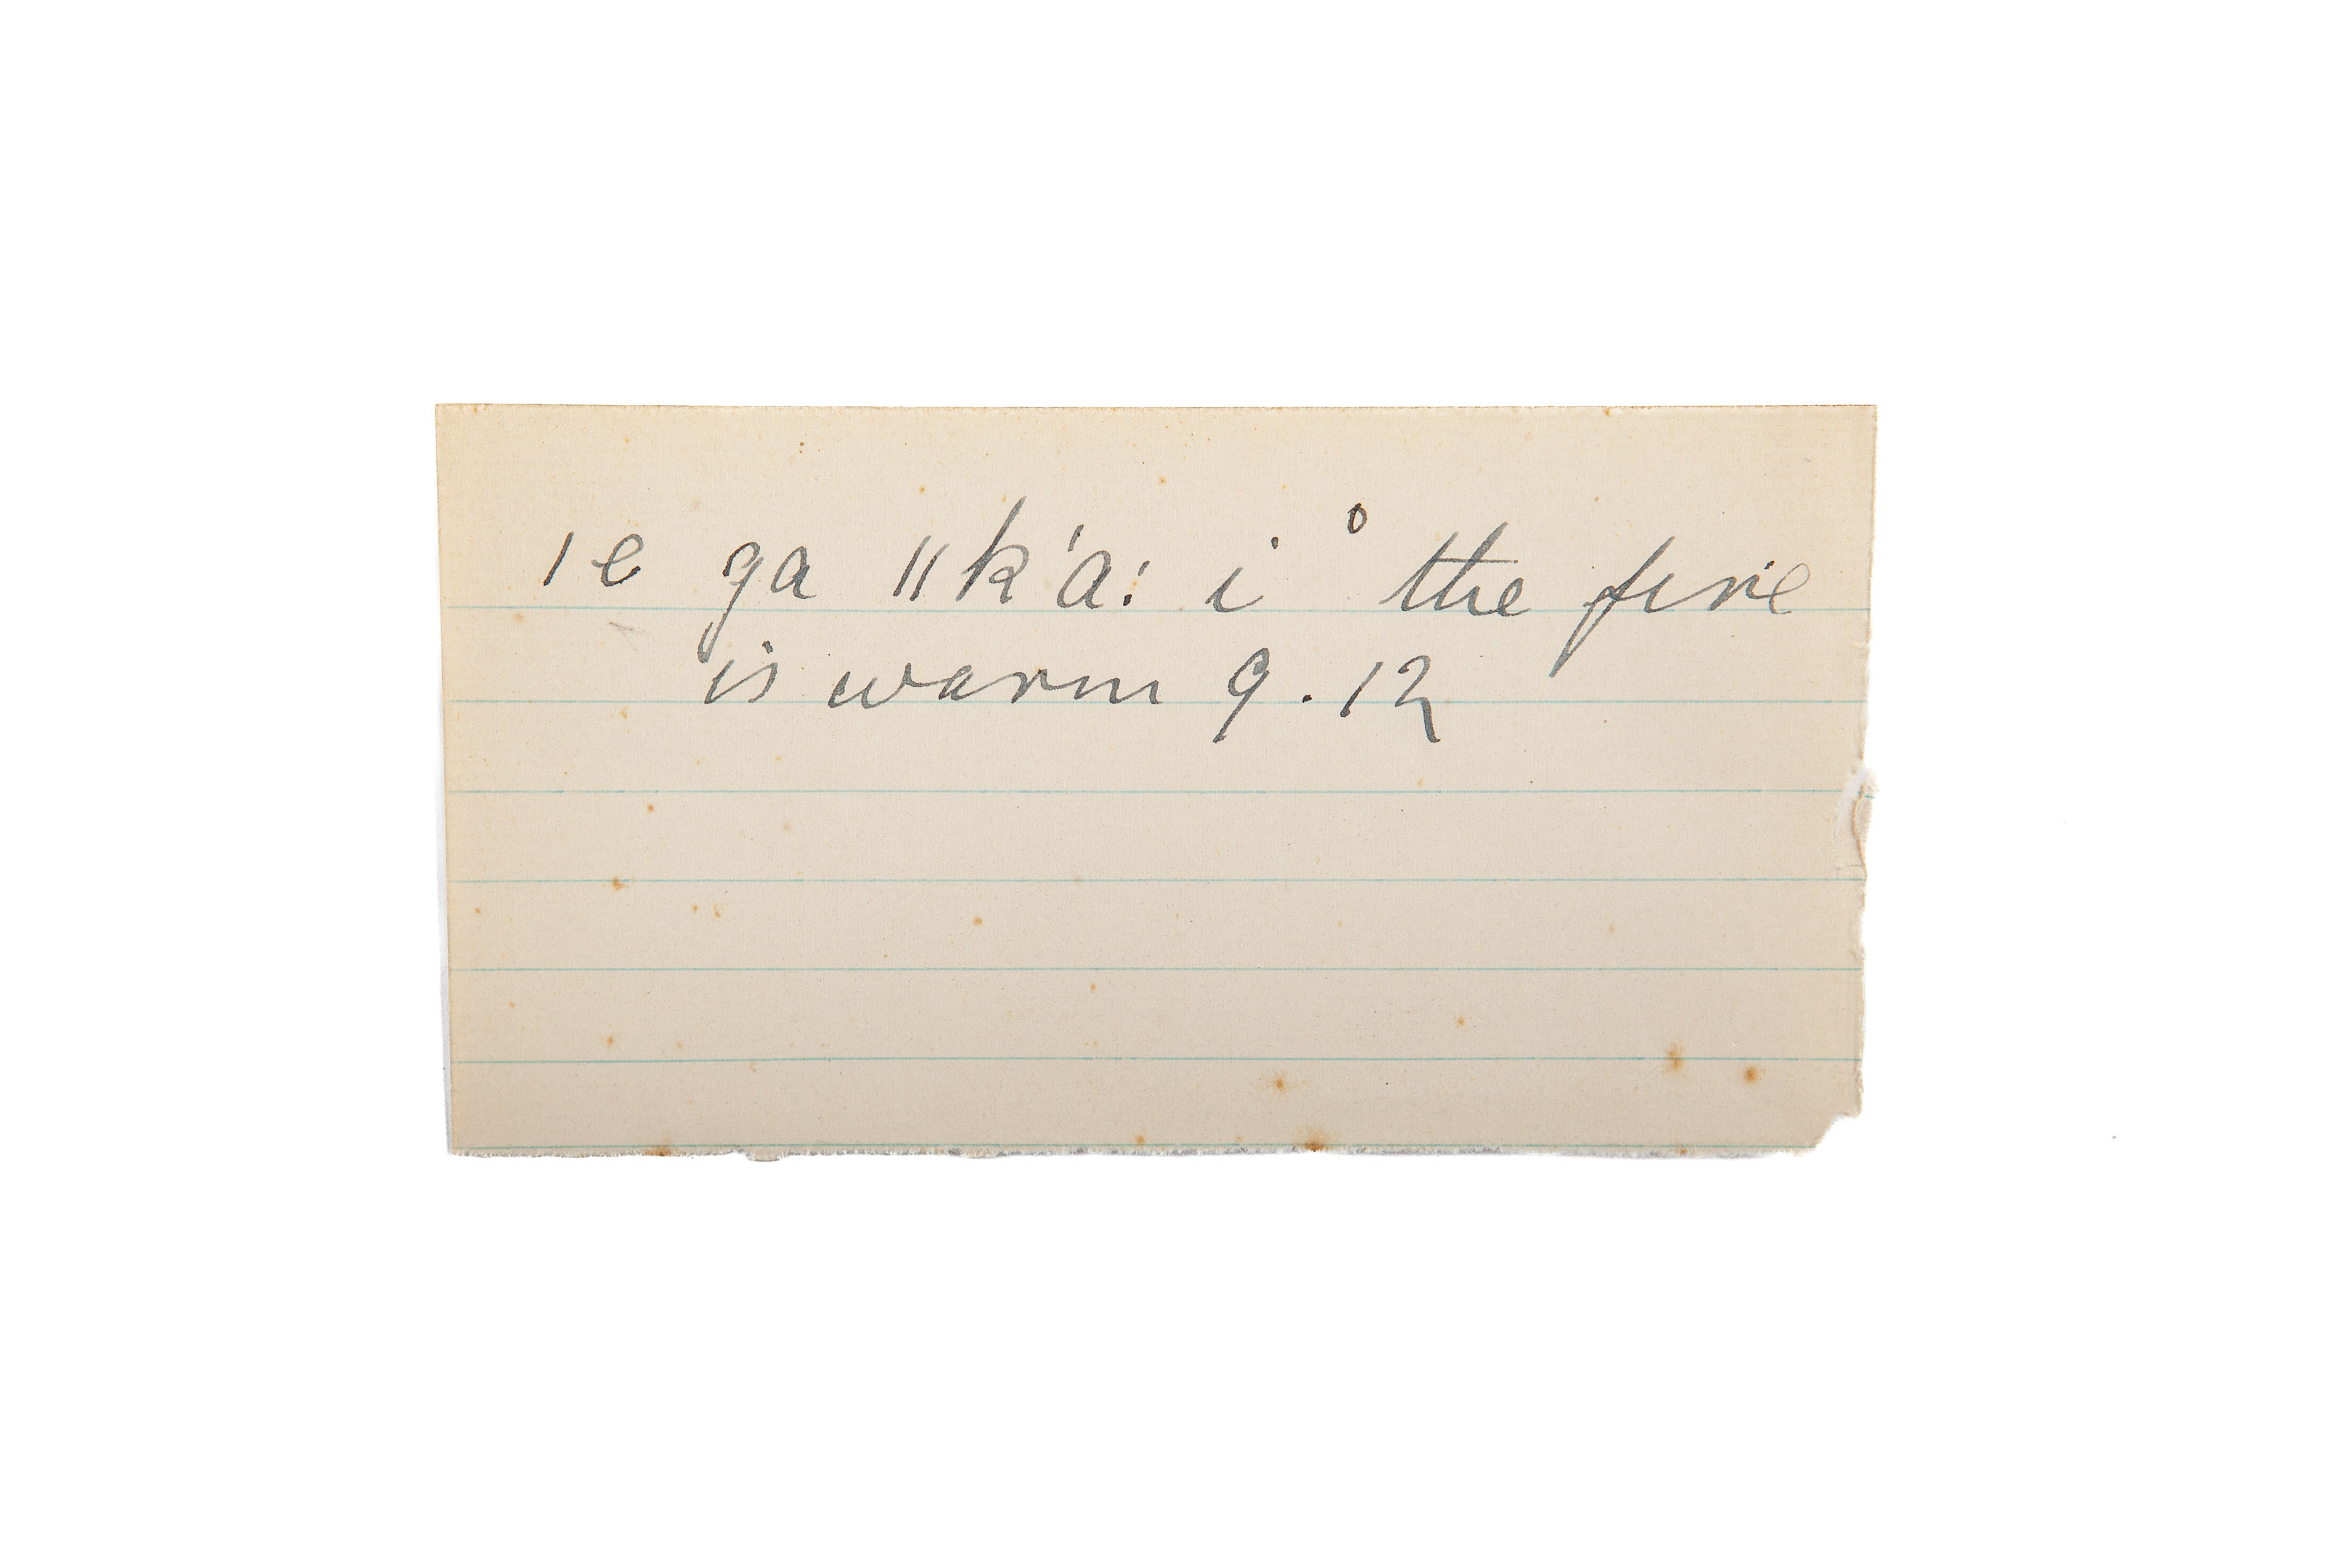 ǀe ga ǁk'a: i° the fire
is warm 9.12